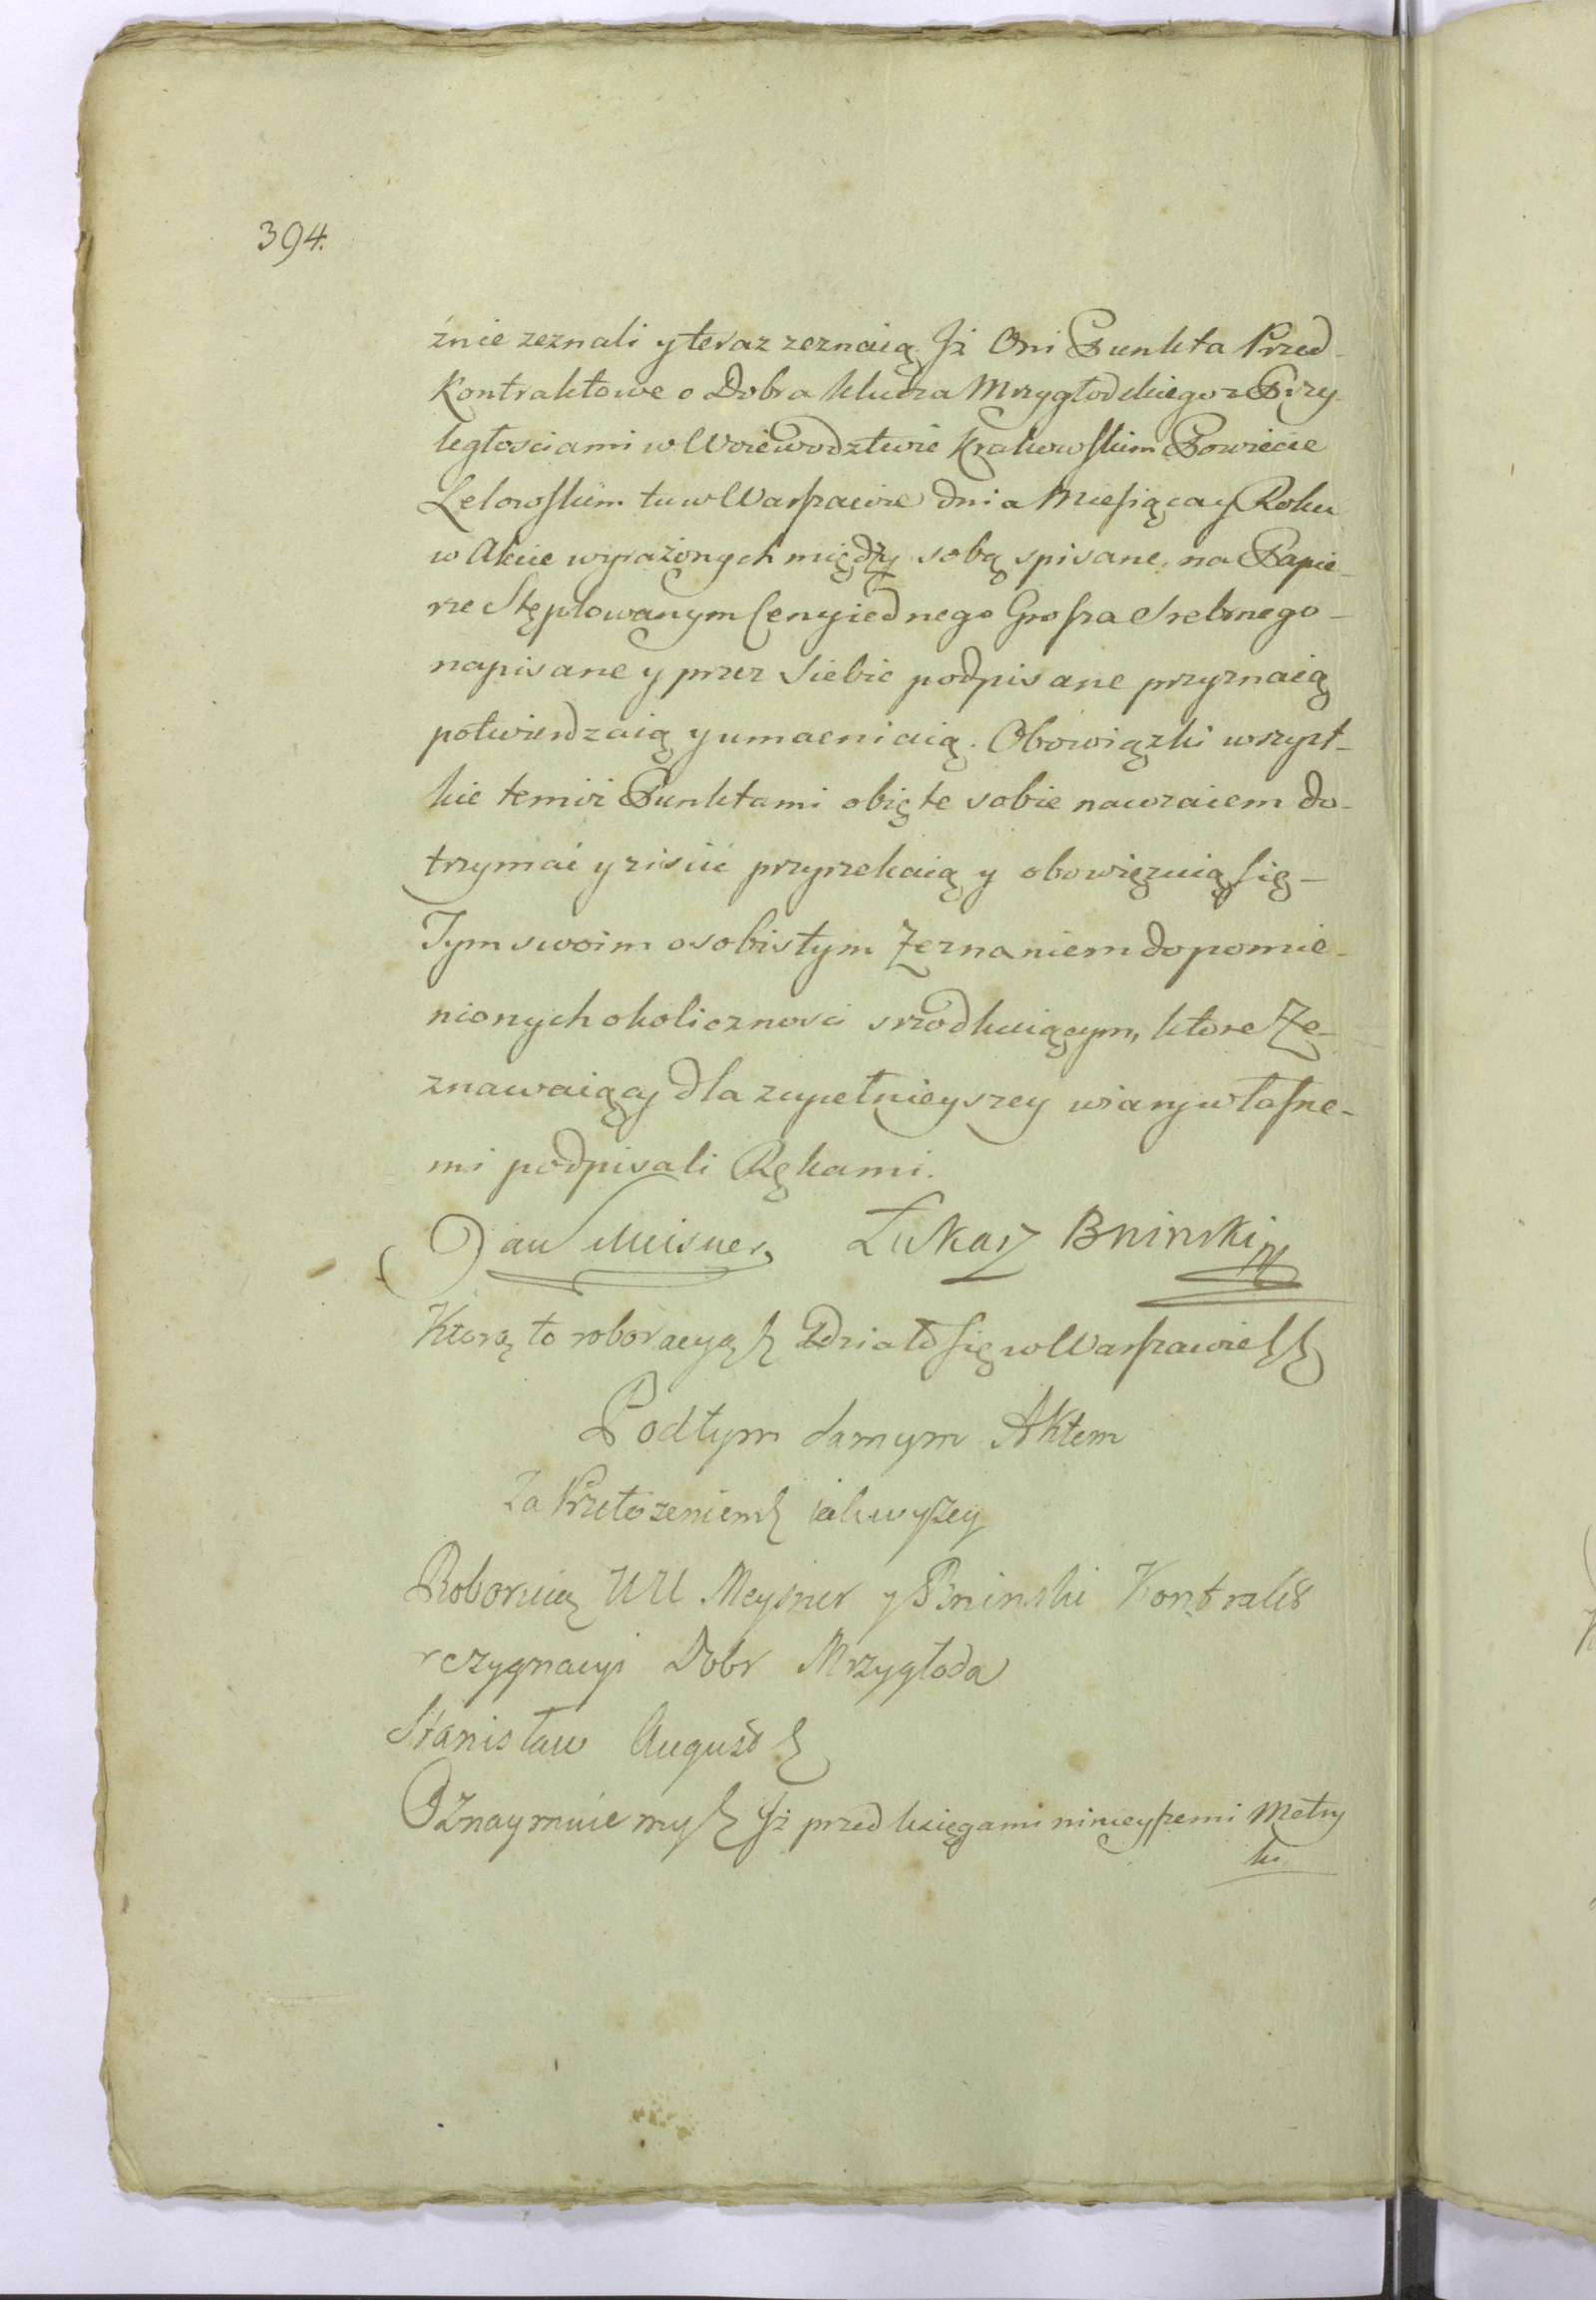 394.
źnie zeznali y teraz zeznaią Jż Oni Punkta Przed-
Kontraktowe o Dobra klucza Mrzygłodzkiego z Przy
ległosciami w Woiewodztwie Krakowskim Powiecie
Lelowskim tu w Warszawie dnia Miesiąca y Roku
w Akcie wyrażonych między sobą spisane, na Papie-
rze Stęplowanym Ceny iednego Grosza Srebrnego-
napisane y przez Siebie podpisane przyznaią
potwierdzaią y umacniaią. Obowiązki wszyst-
kie temiż Punktami obięte sobie nawzaiem do-
trzymać y ziscić przyrzekaią y obowięzuią się-
Tym swoim osobistym Zeznaniem do pomie-
nionych okolicznosci srzodkuiącym, ktore Ze-
znawaiący dla zupełnieyszey wiary własne-
mi podpisali Rękami.
Jan Meisner Łukasz Bninski
Ktorą to roboracyą Działo się w Warszawie
Pod tym samym Aktem
Za Przełożeniem iak wyszey
Roboruią UU Meysner y Bninski Kontrakt
rezygnacyi Dobr Mrzygłoda
Stanisław August
Oznaymuiemy Jż przed księgami ninieyszemi Metry
ki